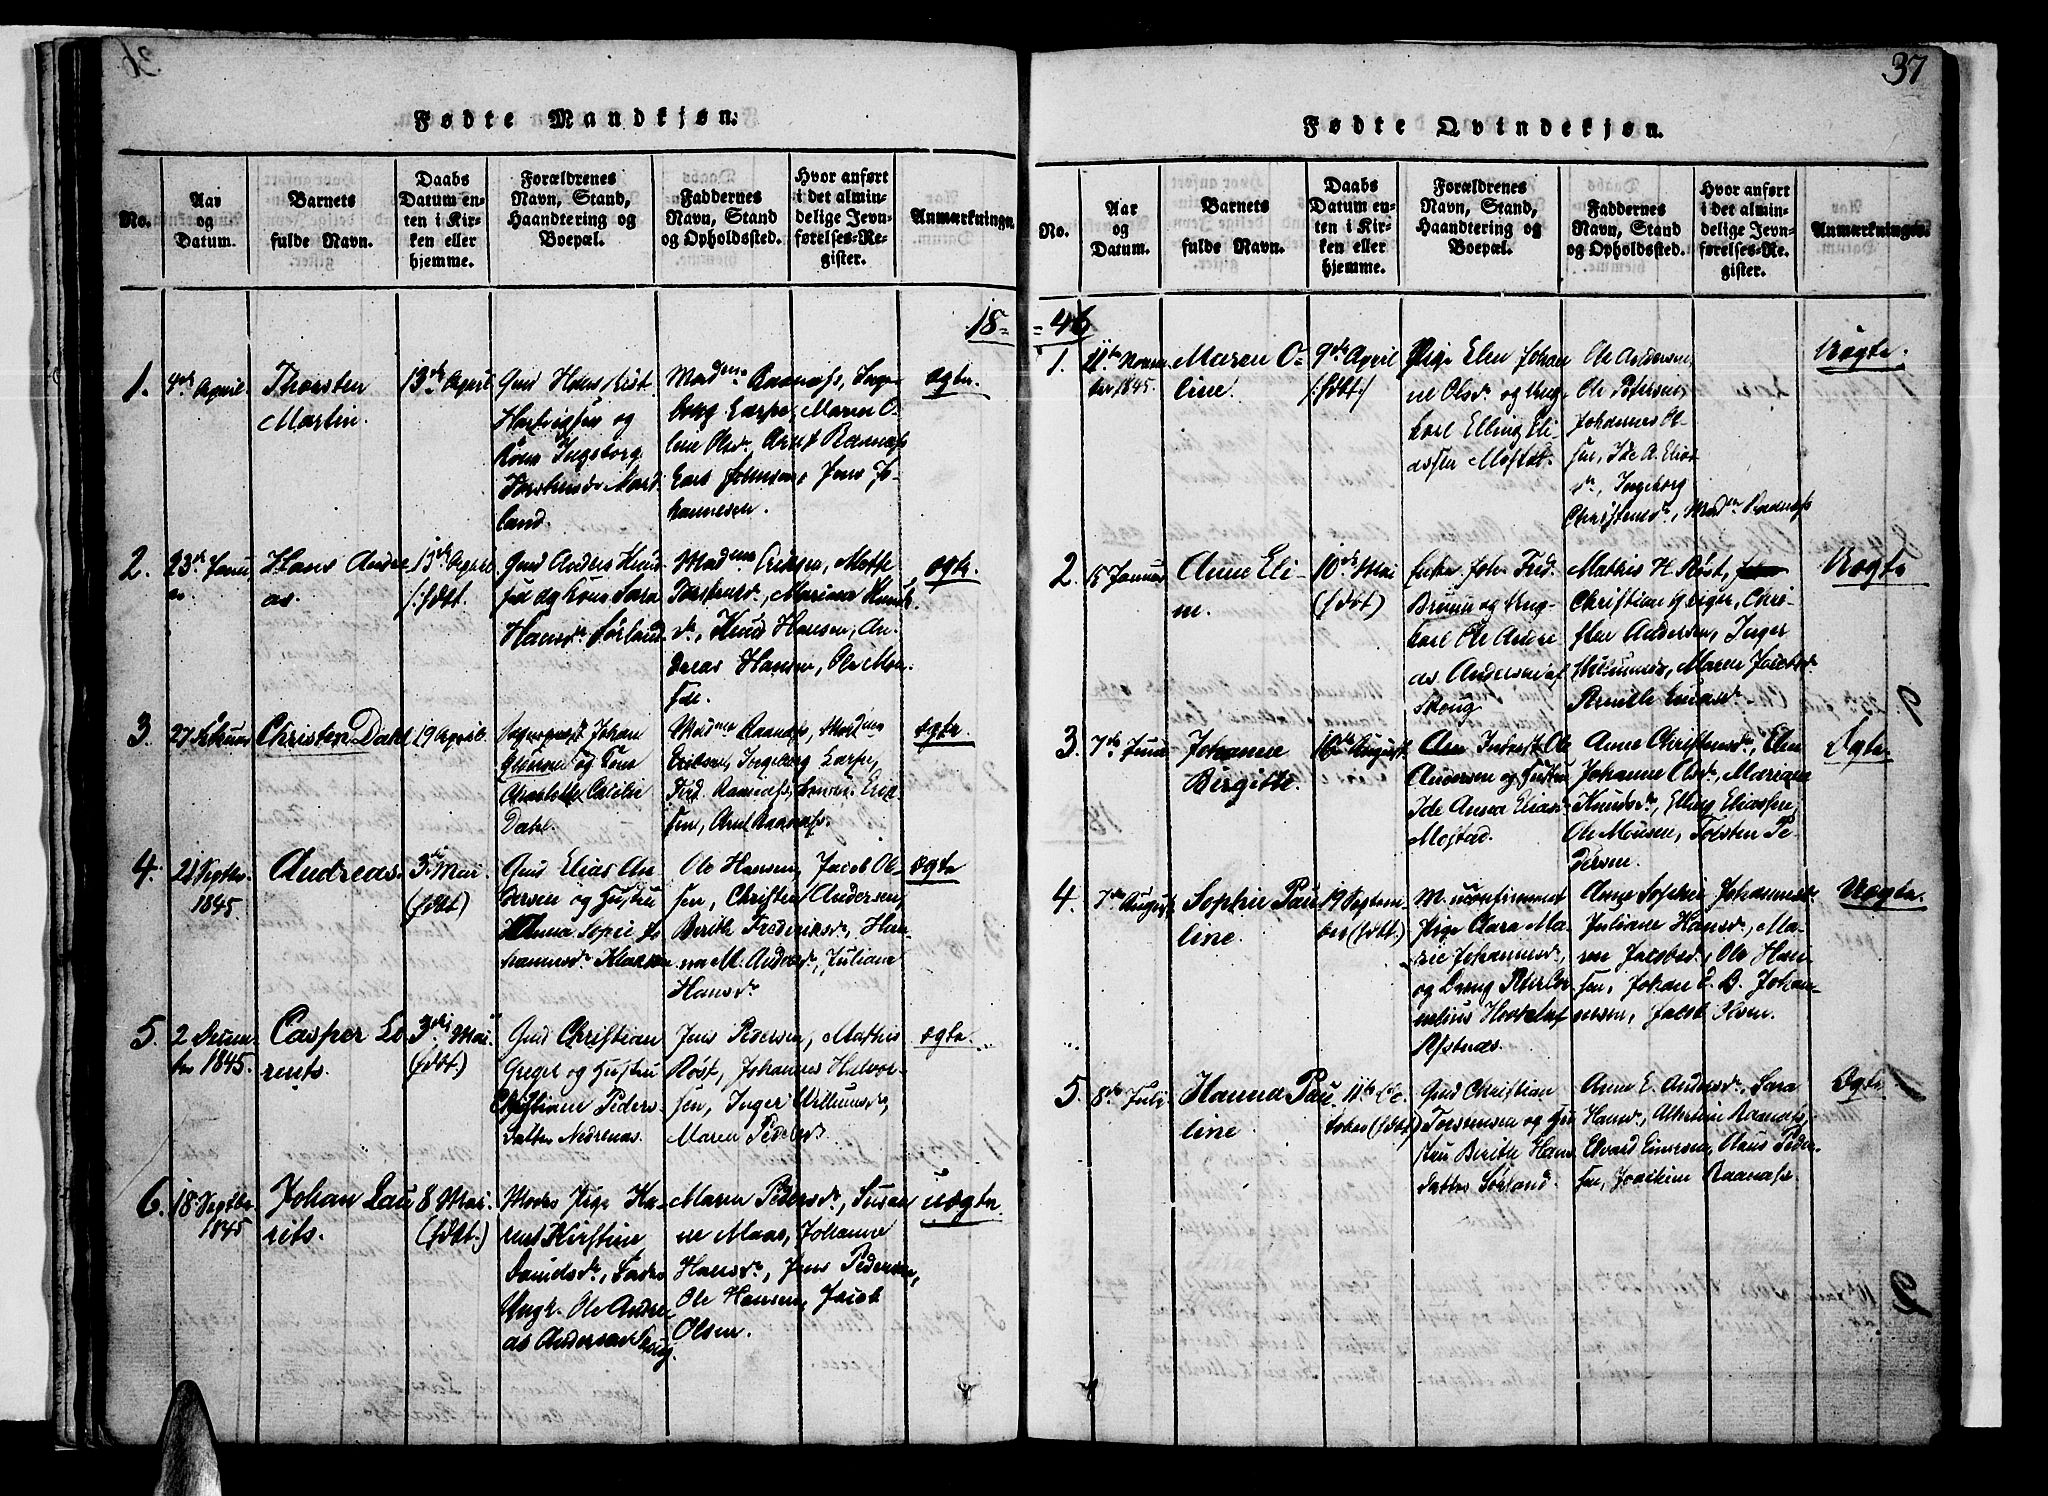 37
Fødte Mandkjøn.
No.
Aar
og
Datum.
Barnets
fulde Navn.
Daabs
Datum en-
ten i Kir-
ken eller
hjemme.
Forældrenes
Navn, Stand,
Haandtering og
Boepæl.
Faddernes
Navn, Stand
og Opholdssted.
Hvor anført
i det almin-
delige Jevn-
førelses-Re-
gister.
Anmærkninger.
18
1.
4de April
Thorsten
Martin.
13de April
Hartvigsen og
Ingeborg
land.
Madme Raanass, Inge-
borg Carpe, Maren O-
line Olsdr, Arnt Raanass
Jens Jo-
hannesen.
ægte.
2.
23de Janu
Hans Andre
as.
13de April
(hdbt.
Gmd Anders Knud
sen og Kone Sara
Hansdr Sørland.
Madme Eriksen, Mette
Torstensdr, Marina Knuds
dr, Knud Hansen, An-
dreas Hansen, Ole Mon-
sen.
ægte.
3.
27 Februar
Christen Dahl
19 April.
Johan
og Kone
Charlotte Cecilie
Dahl.
Madme Raanass, Madme
Eriksen, Ingeborg Carpe,
Ferd. Raanass, Erik-
sen, Arnt Raanass.
ægte.
4.
21 Septbr.
1845.
Andreas.
3die Mai.
(hdbt)
Gmd Elias An-
dersen og Hustru
Anna Sopie Jo
hannesdr
Ole Hansen, Jacob Ol-
sen, Christen Andersen,
Berith Frederiksdr, Han-
na M. Andersdr, Juliane
Hansdr
ægte
5.
2 Decem-
ber 1845.
Casper Lo
rents.
3die Mai.
(hdbt)
Gmd Christian
Greger og Hustru
Christiane Peders
datter Nedrenas.
Jens Pedersen, Mathis
Røst, Johannes Halvor-
sen, Inger Willumsdr,
Maren Pedersdr
ægte.
6.
18 Septbr.
1845
Johan Lau
rits.
8 Mai.
(hdbt.)
Moder Pige Ka-
ren Kirstine
Danielsdr, Fader
Ungk. Ole Andre-
as Andersen Skoug.
Maren Pedersdr, Susan
ne Maas, Johanne
Hansdr, Jens Pedersen,
Ole Hansen, Jacob
Olsen.
uægte.
Fødte Qvindekjøn.
No.
Aar
og
Datum.
Barnets
fulde Navn.
Daabs
Datum en-
ten i Kir-
ken eller
hjemme.
Forældrenes
Navn, Stand,
Haandtering og
Boepæl.
Faddernes
Navn, Stand
og Opholdssted.
Hvor anført
i det almin-
delige Jevn-
førelses-Re-
gister.
Anmærkninger.
46
1.
11te Novem
ber, 1845.
Maren O-
line.
9de April
(hdbt)
Pige Elen Johan
ne Olsdr og Ung-
karl Elling Eli-
assen Mostad.
Ole Andersen,
Ole Petersen,
Johannes Ol-
sen, Ide A. Elias
dr, Ingeborg
Christensdr, Madme Raanass
Uægte.
2.
15 Januar
Anne Eli-
n.
10de Mai
(hdbt)
Enke Joh. Fred.
Bruun og Ung-
karl Ole Andre
as Andersen af
Skoug
Mathis H. Røst,
Christian Greger, Chri-
sten Andersen, Inger
Willumsen, Maren Jacobsdr
Pernille Einarsdr.
Uægte
3.
7de Juni
Johanne
Birgitte.
16de August.
Arn. Inderst Ole
Andersen og Hustru
Ide Anna Eliasdr
Mostad.
Anne Christensdr, Elen
Johanne Olsdr, Mariane
Knudsdr, Elling Eliassen,
Ole Monsen, Torsten Pe-
dersen.
Ægte.
4.
7de August
Sophie Pau
line.
19 Septem-
ber (hdbt.)
M. uconfirmeret
Pige Clara Ma-
rie Johannesdr,
og Dreng Peter Cor
nelius
Anne Sophie Johannesdr.
Juliane Hansdr, Ma-
ren Jacobsdr, Ole Han-
sen, Johan O. B. Johan-
nessen, Jacob Olsen.
Uægte.
5.
8de Juli
Hanna Pau
line.
11te Oc-
tober (hdbt)
Gmd Christian
Torstensen og Hu
stru Berith Hans
datter Sørland.
Anne E. Andersdr, Sara
Hansdr, Albertine Raanass,
Edvard Einersen, Claus Peder-
sen, Joachim Raanass.
Ægte